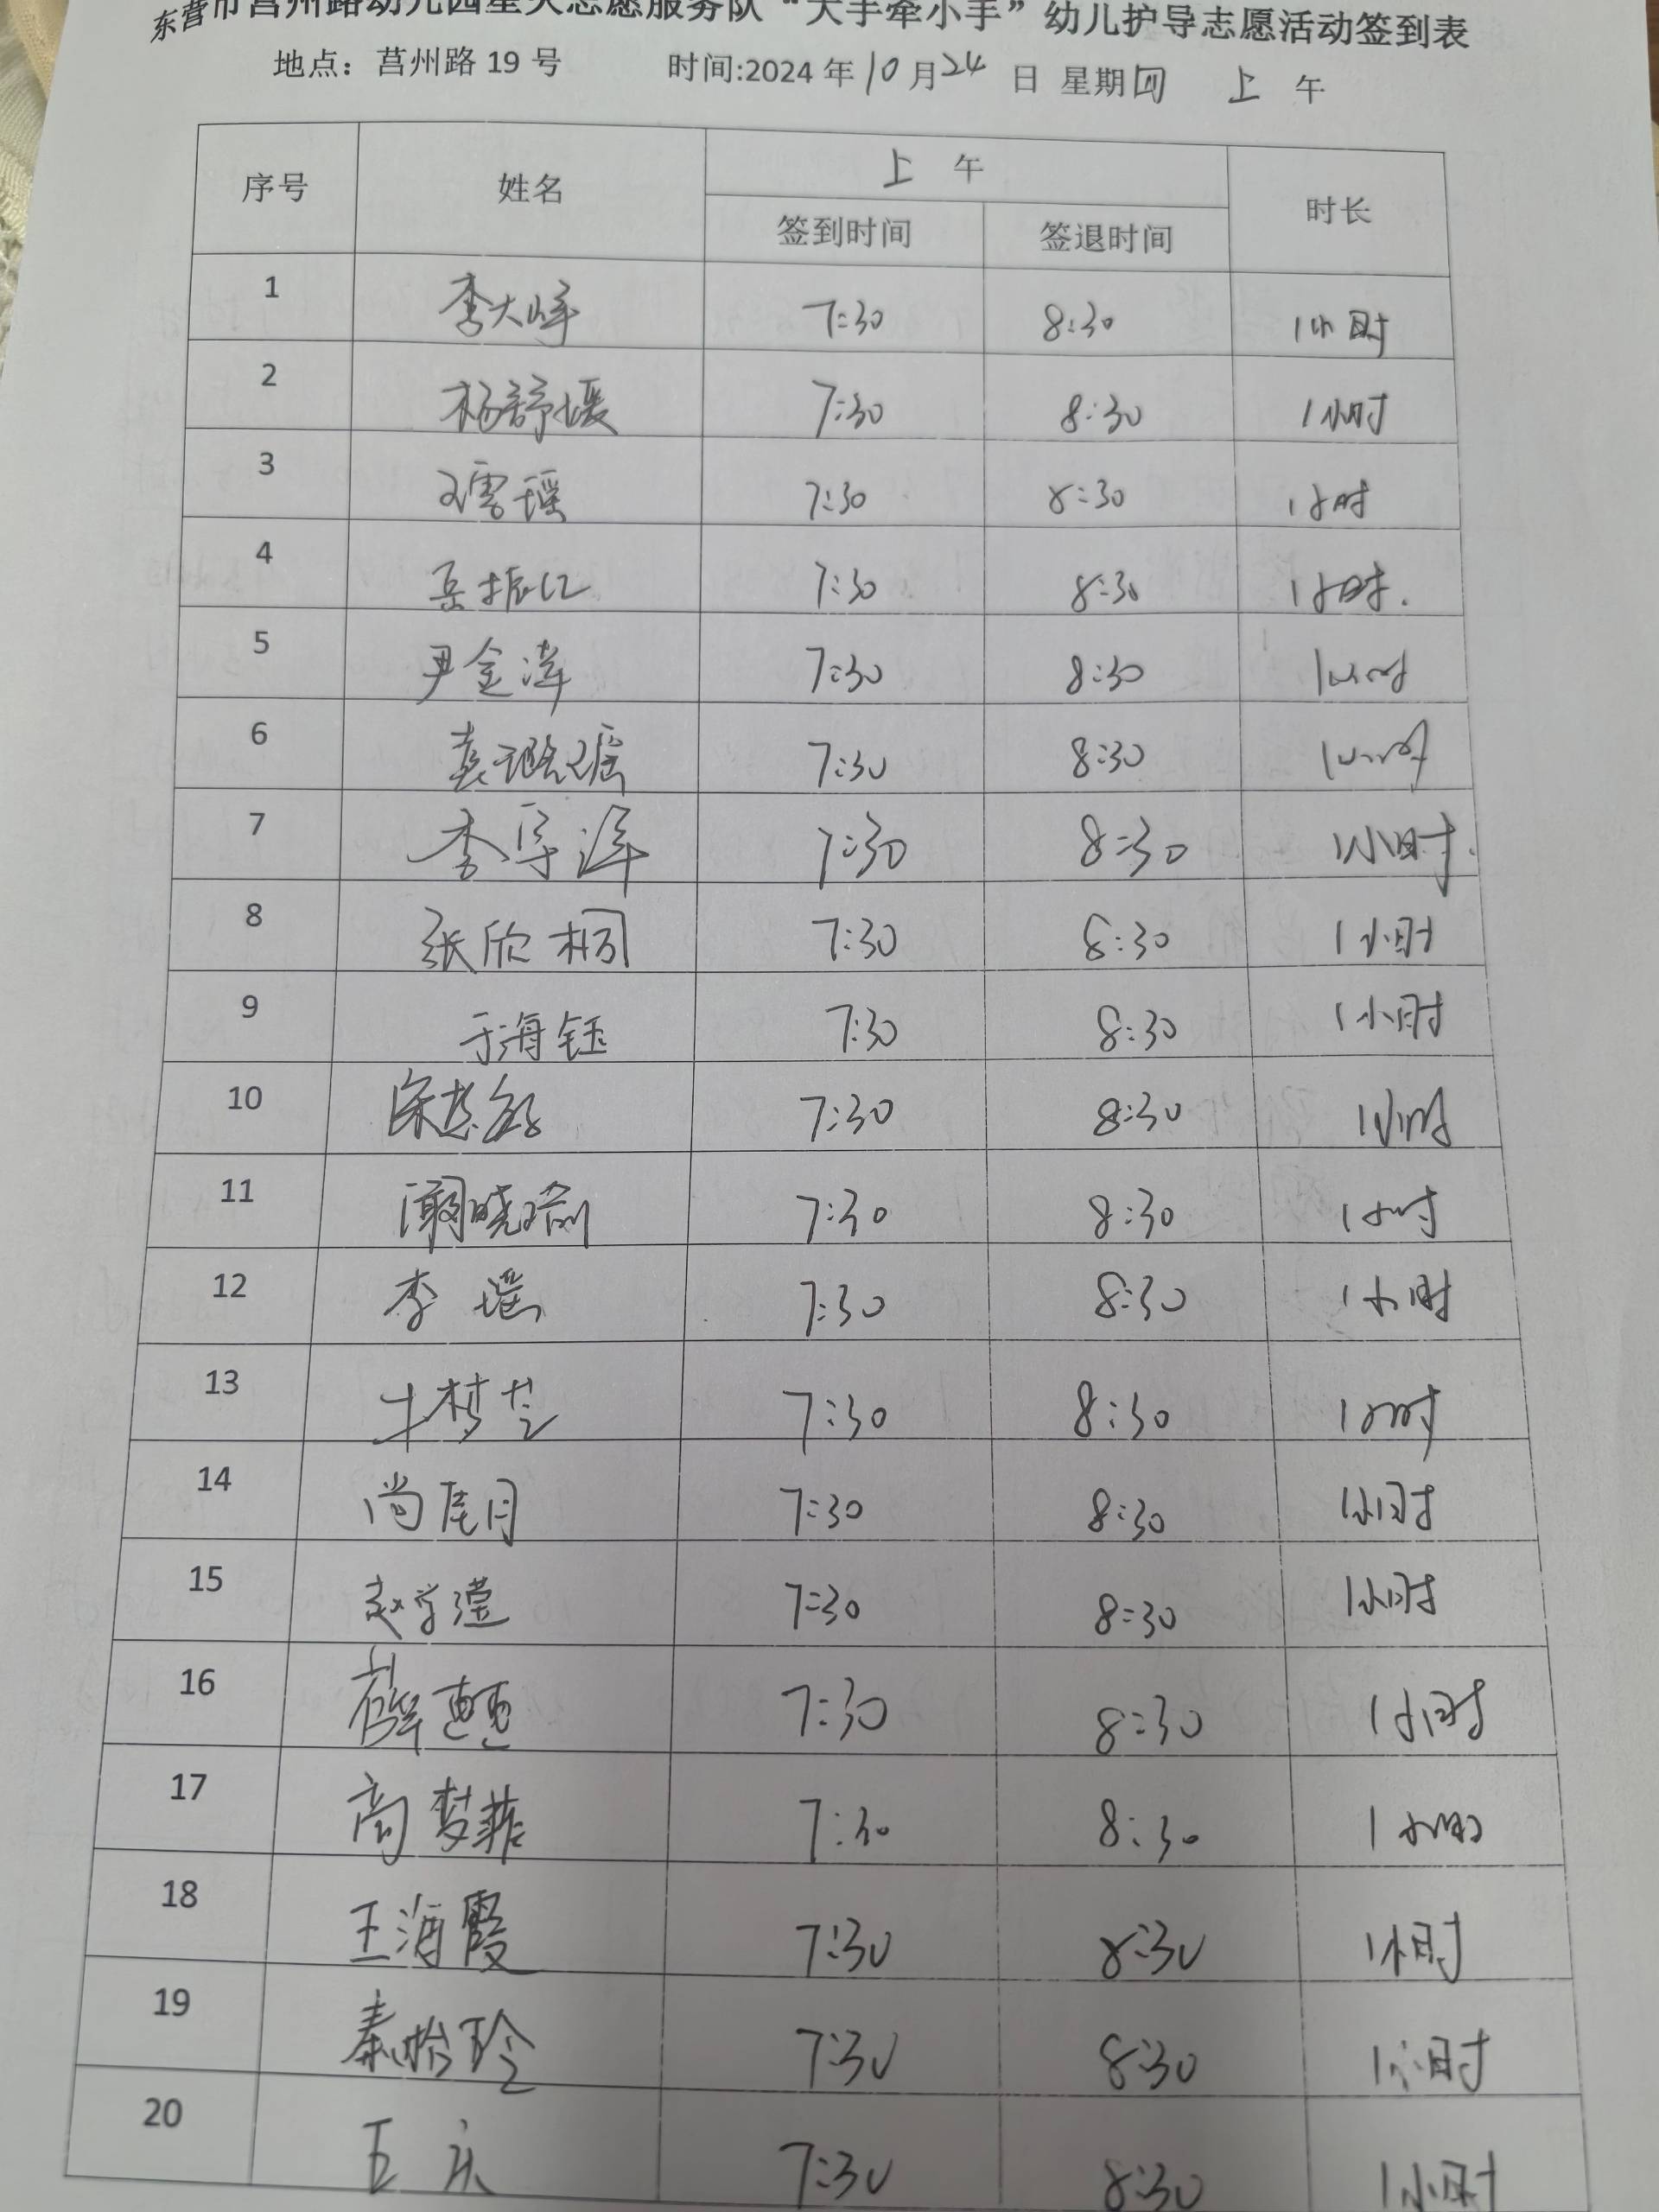 东营市莒州路幼儿园星火志愿服务队“大手牵小手”幼儿护导志愿活动签到表
地点：莒州路 19 号 时间:2024 年 10 月 24 日 星期四 上 午
序号 姓名 上 午 时长
签到时间 签退时间
1 李大峰 7:30 8:30 1小时
2 杨舒媛 7:30 8:30 1小时
3 雪瑶 7:30 8:30 1小时
4 岳振江 7:30 8:30 1小时.
5 尹金 7:30 8:30 1小时
6 袁璐瑶 7:30 8:30 1小时
7 李 7:30 8:30 1小时.
8 张欣桐 7:30 8:30 1小时
9 于海钰 7:30 8:30 1小时
10 7:30 8:30 1小时
11 晓 7:30 8:30 1小时
12 李 瑶 7:30 8:30 1小时
13 梦 7:30 8:30 1小时
14 尚 月 7:30 8:30 1小时
15 赵学滢 7:30 8:30 1小时
16 薛 7:30 8:30 1小时
17 商梦菲 7:30 8:30 1小时
18 王海霞 7:30 8:30 1小时
19 秦怡玲 7:30 8:30 1小时
20 7:30 8:30 1小时